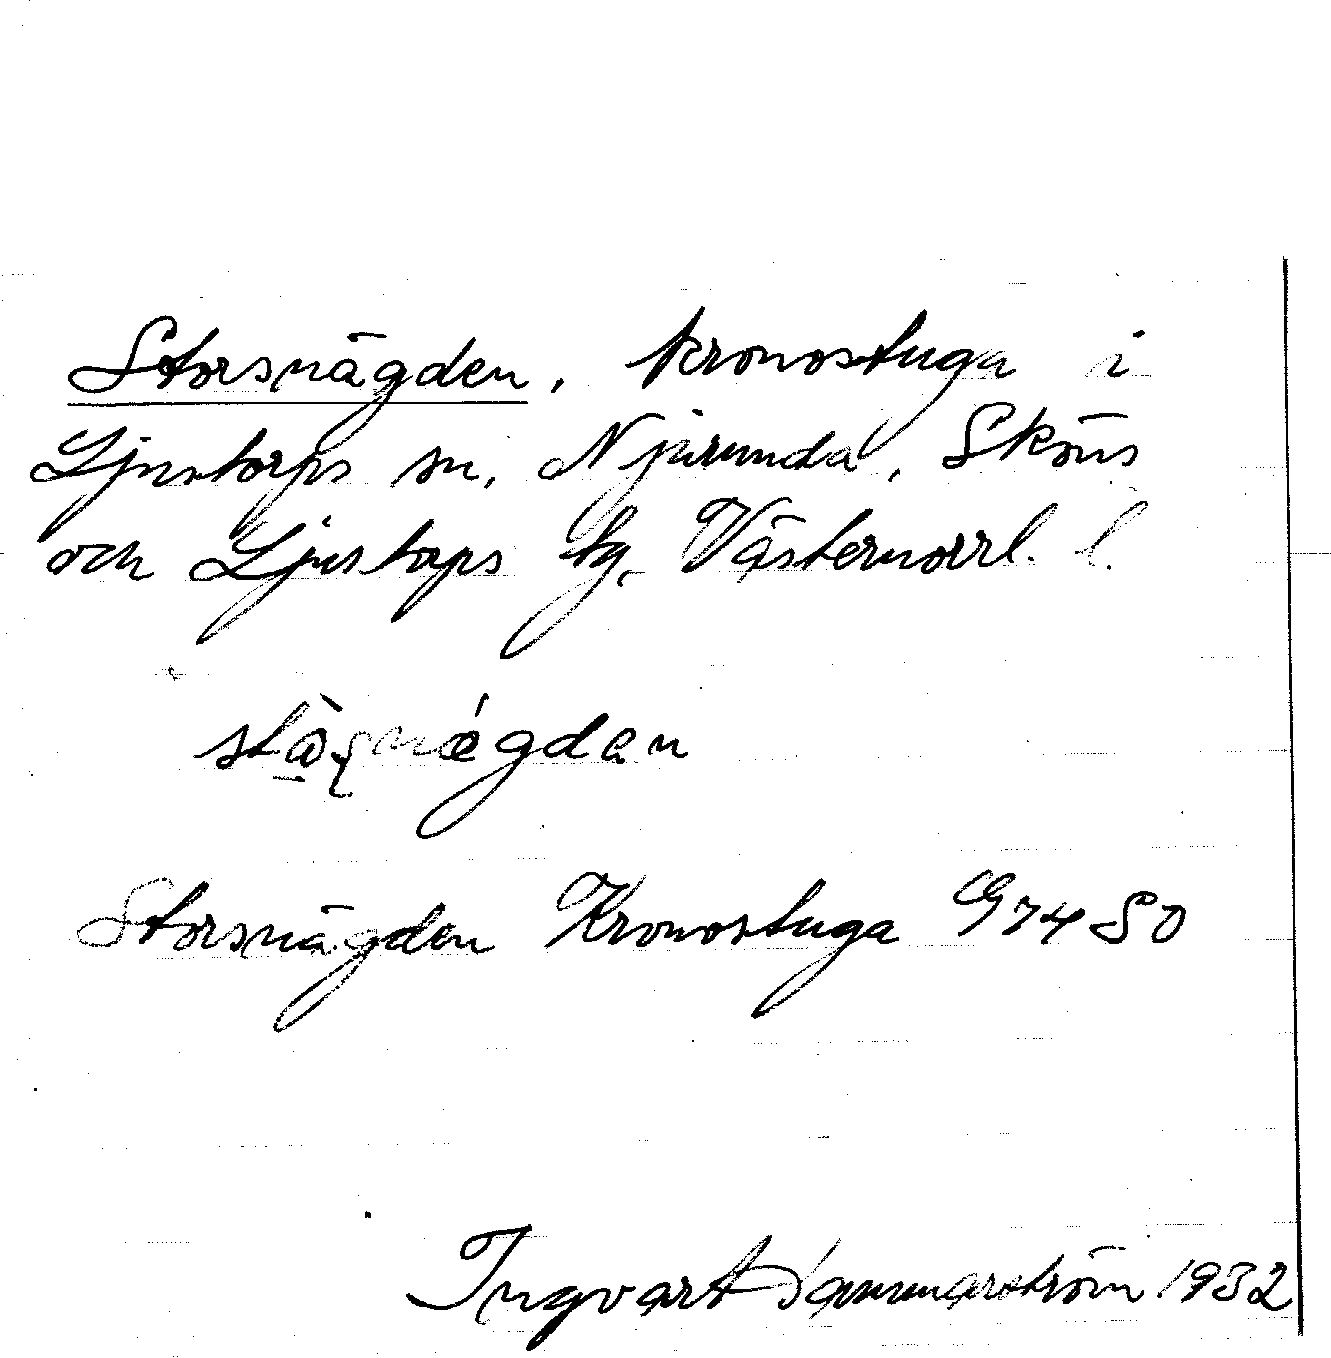 Storsnägden, kronostuga i
Ljustorps sn, Njurunda, Sköns
och Ljustorps tg, Västernorrl. l.
Storsnägden Kronostuga G74 SO
Ingvart Hammarström 1932